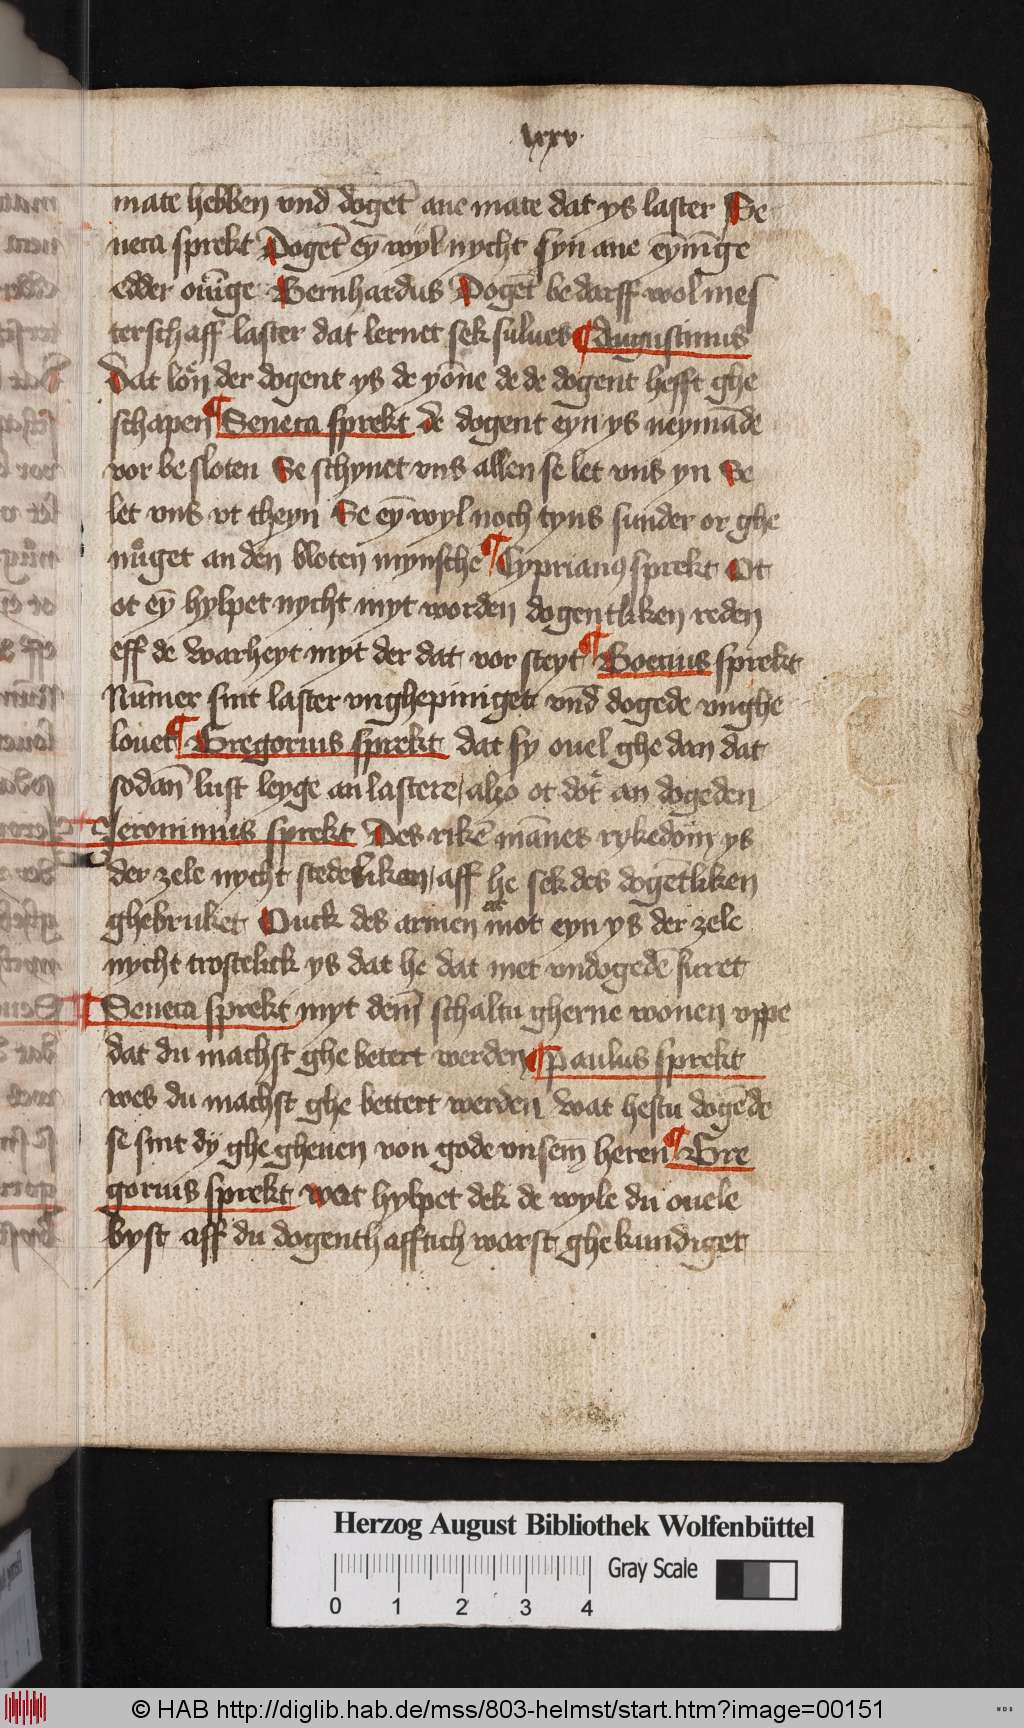 lxxv
mate hebben vnd doget ane mate dat ys laster Se
neca sprekt Doget eȳ wyl nycht syn ane eynīge
edder ouīge Bernhardus Doget be darff wol mes
terschaff laster dat lernet sek sulues ¶ Augustinus
Dat lon der dogent ys de yōne de de dogent hefft ghe
schapen ¶ Seneca sprekt de dogent eyn ys neymāde
vor be sloten Se schynet vns allen se let vns yn Se
let vns vt theyn Se eȳ wyl noch tyns sunder or ghe
nůget an den bloten mynsche ¶ Cyprianus sprekt Ot
ot eȳ hylpet nycht myt worden dogentliken reden
eff de warheyt myt der dat vor steyt ¶ Boecius sprekt
Nūmer sint laster vnghepiniget vnd dogede vnghe
louet ¶ Gregorius sprekt dat sy ouel ghe dan dat
sodan lust leyge an lastere / also ot dot an dogeden
Jeronimus sprekt Des rikē mānes rykedom ys
der zele nycht stedeliken / aff he sek des dogētliken
ghebruket Ouck des armen not eyn ys der zele
nycht trostelick ys dat he dat met vndogedē furet
¶ Seneca sprekt myt dem schaltu gherne wonen vppe
dat du machst ghe betert werden ¶ Paulus sprekt
wes du machst ghe bettert werden wat hestu dogēde
se sint dy ghe gheuen von gode vnsem heren ¶ Gre
gorius sprekt wat hylpet dek de wyle du ouele
byst aff du dogenthafftich warst ghe kundiget
Herzog August Bibliothek Wolfenbüttel
Gray Scale
0 1 2 3 4
© HAB http://diglib.hab.de/mss/803-helmst/start.htm?image=00151